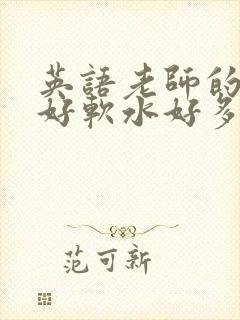 英語老師的
好軟水好多
范可新